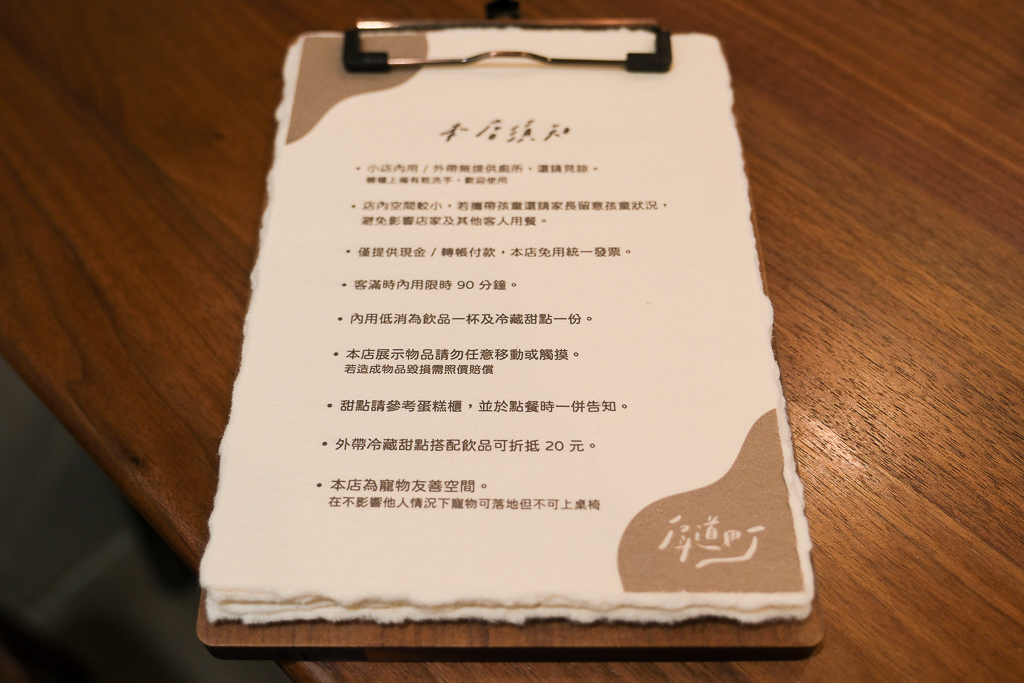 本店須知
• 小店內用 / 外帶無提供廁所，還請見諒。
櫃檯上備有乾洗手，歡迎使用
• 店內空間較小，若攜帶孩童還請家長留意孩童狀況，
避免影響店家及其他客人用餐。
• 僅提供現金 / 轉帳付款，本店免用統一發票。
• 客滿時內用限時 90 分鐘。
• 內用低消為飲品一杯及冷藏甜點一份。
• 本店展示物品請勿任意移動或觸摸。
若造成物品毀損需照價賠償
• 甜點請參考蛋糕櫃，並於點餐時一併告知。
• 外帶冷藏甜點搭配飲品可折抵 20 元。
• 本店為寵物友善空間。
在不影響他人情況下寵物可落地但不可上桌椅
道町